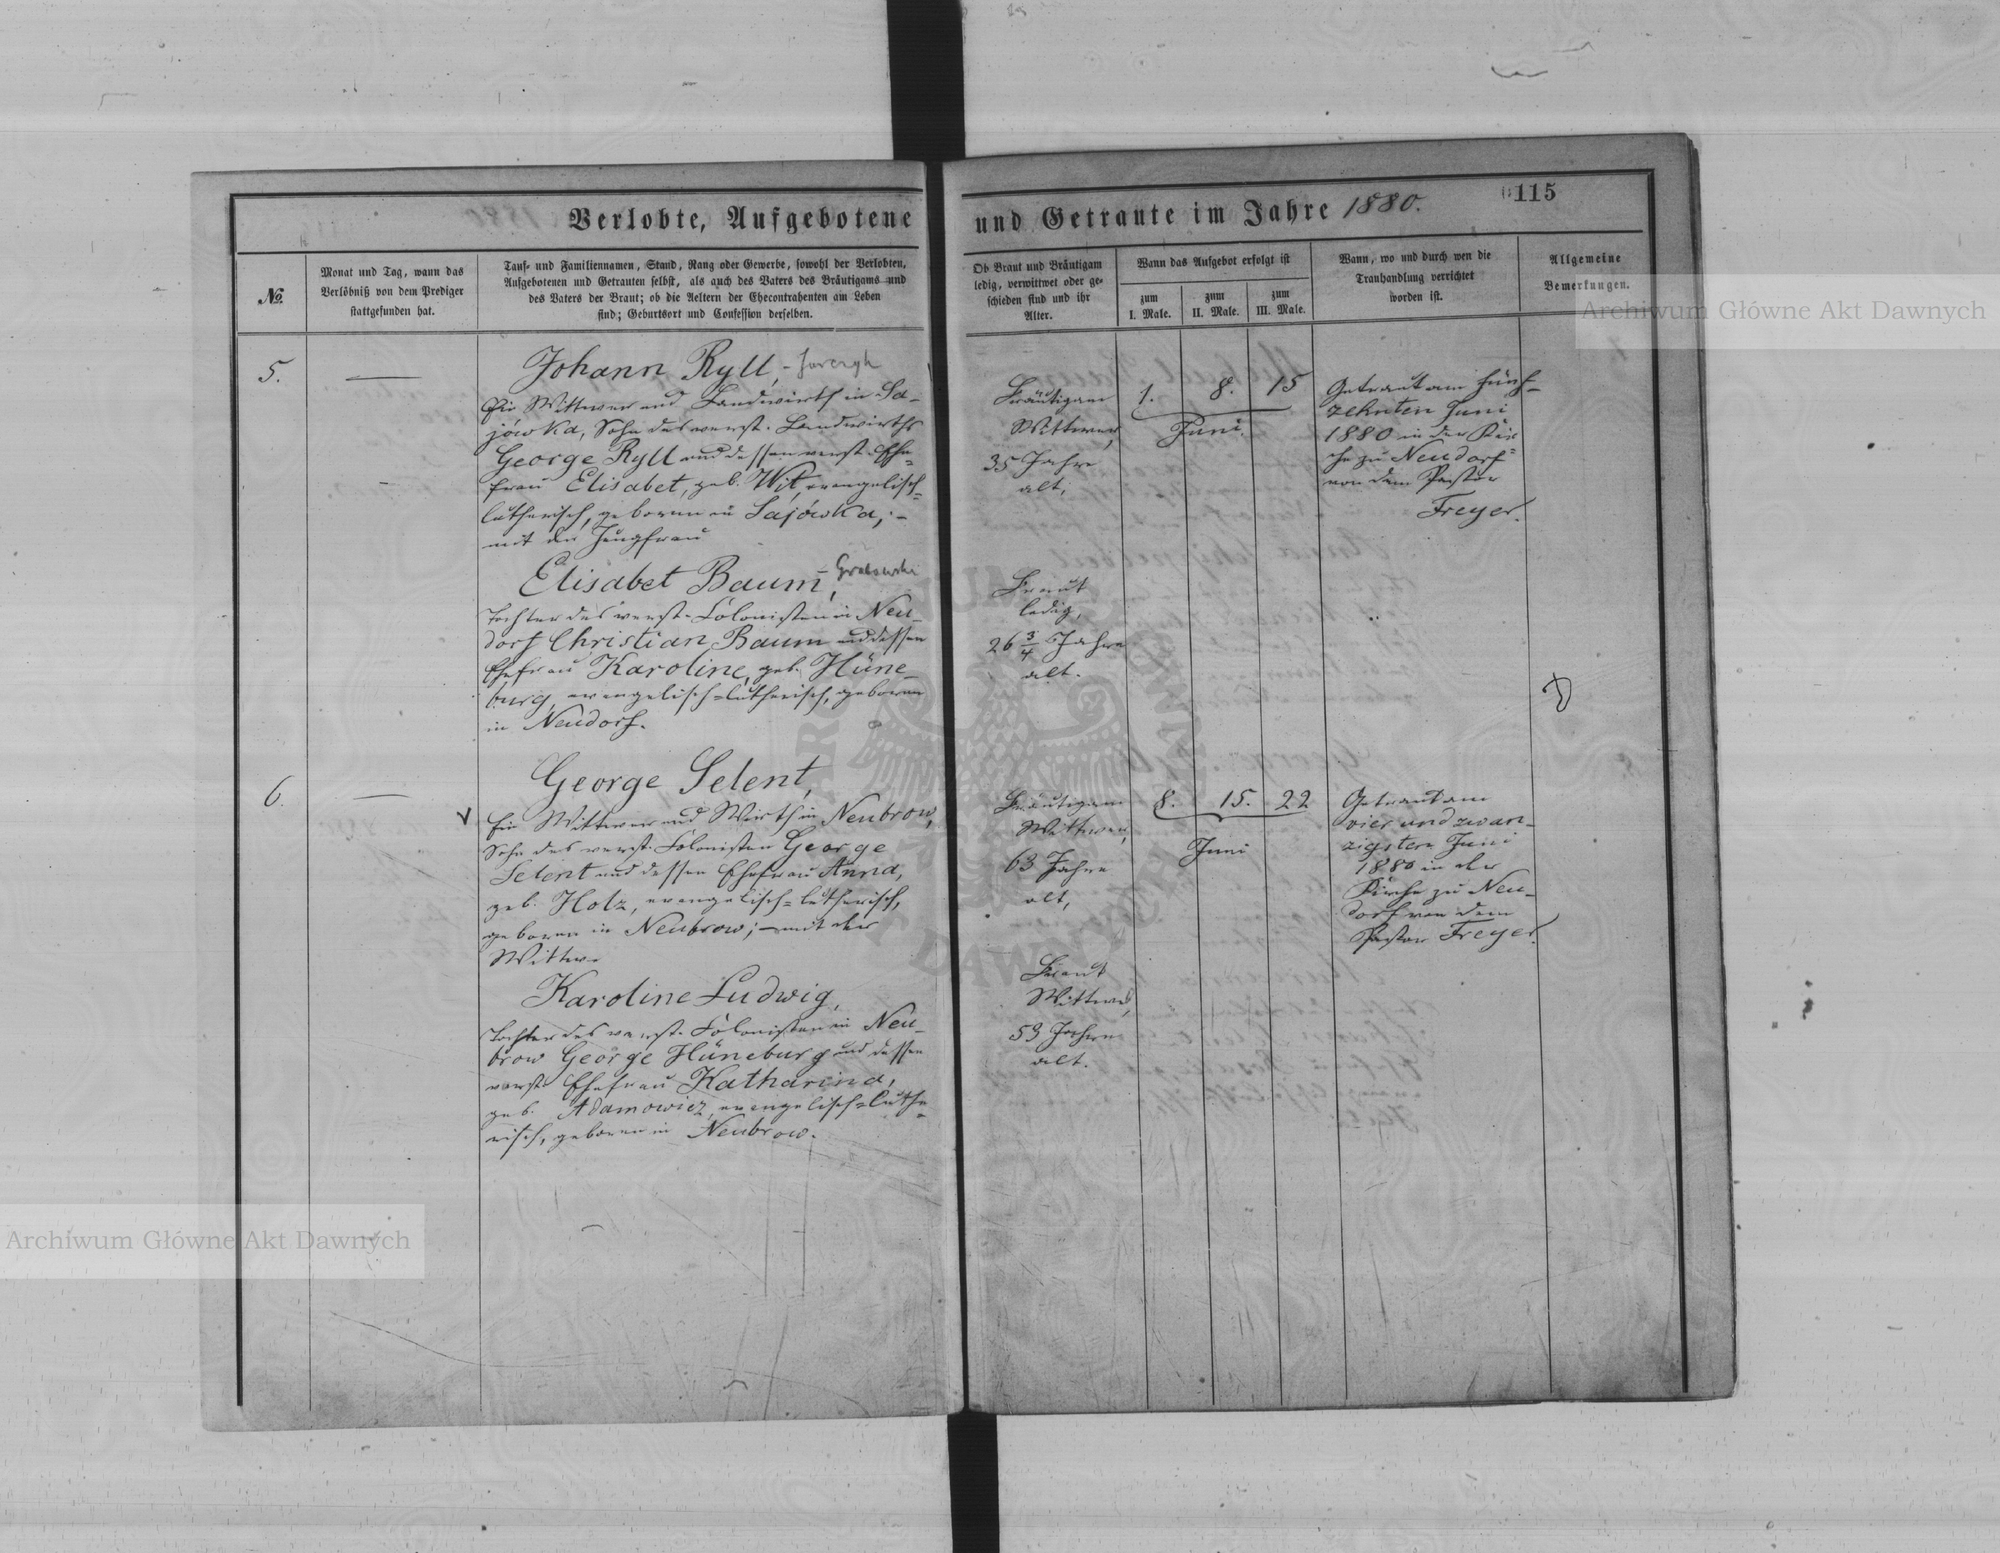 115
Verlobte, Aufgebotene und Getraute im Jahre 1880.
No.
Monat und Tag, wann das
Verlöbniß von dem Prediger
stattgefunden hat.
Tauf- und Familiennamen, Stand, Rang oder Gewerbe, sowohl der Verlobten,
Aufgebotenen und Getrauten selbst, als auch des Vaters des Bräutigams und
des Vaters der Braut; ob die Aeltern der Ehecontrahenten am Leben
sind; Geburtsort und Confession derselben.
Ob Braut und Bräutigam
ledig, verwittwet oder ge-
schieden sind und ihr
Alter.
Wann das Aufgebot erfolgt ist
zum
I. Male.
zum
II. Male.
zum
III. Male.
Wann, wo und durch wen die
Trauhandlung verrichtet
worden ist.
Allgemeine
Bemerkungen.
5.
Johann Ryll,
Ein Wittwer und Landwirth in Sa-
jówka, Sohn des verst. Landwirths
George Ryll und dessen verst. Ehe-
frau Elisabet, geb. Wit, evangelisch-
lutherisch, geboren in Sajówka; -
mit der Jungfrau
Elisabet Baum, - Grabowski
Tochter des verst. Colonisten in Neu-
dorf Christian Baum und dessen
Ehefrau Karoline, geb. Hüne-
burg, evangelisch-lutherisch, geboren
in Neudorf.
Bräutigam
Wittwer,
35 Jahre
alt,
Braut
ledig,
26 3/4 Jahre
alt.
1. 8. 15
Juni.
Getraut am fünf-
zehnten Juni
1880 in der Kir
che zu Neudorf
von dem Pastor
Freyer.
6.
George Selent,
Ein Wittwer und Wirth in Neubrow,
Sohn des verst. Colonisten George
Selent und dessen Ehefrau Anna,
geb. Holz, evangelisch-lutherisch,
geboren in Neubrow; - mit der
Wittwe
Karoline Ludwig,
Tochter des verst. Colonisten in Neu-
brow George Hüneburg und dessen
verst. Ehefrau Katharina,
geb. Adamowicz, evangelisch-luthe-
risch, geboren in Neubrow.
Bräutigam
Wittwer,
63 Jahre
alt,
Braut
Wittwe,
53 Jahre
alt.
8. 15. 22
Juni
Getraut am
vier und zwan-
zigsten Juni
1880 in der
Kirche zu Neu-
dorf von dem
Pastor Freyer.
Archiwum Główne Akt Dawnych
Archiwum Główne Akt Dawnych